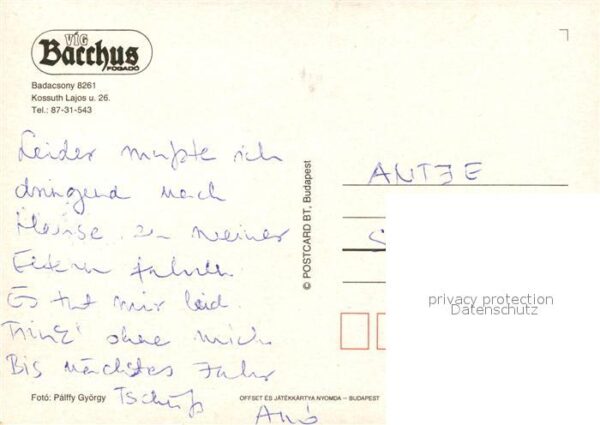 VÍG
Bacchus
FOGADÓ
Badacsony 8261
Kossuth Lajos u. 26.
Tel.: 87-31-543
Leider mußte ich
dringend nach
Hause zu meinen
Eltern fahren.
Es tut mir leid.
Trink' ohne mich
Bis nächstes Jahr
Tschüß
© POSTCARD BT, Budapest
ANTJE
privacy protection
Datenschutz
Fotó: Pálffy György
OFFSET ÉS JÁTÉKKÁRTYA NYOMDA – BUDAPEST